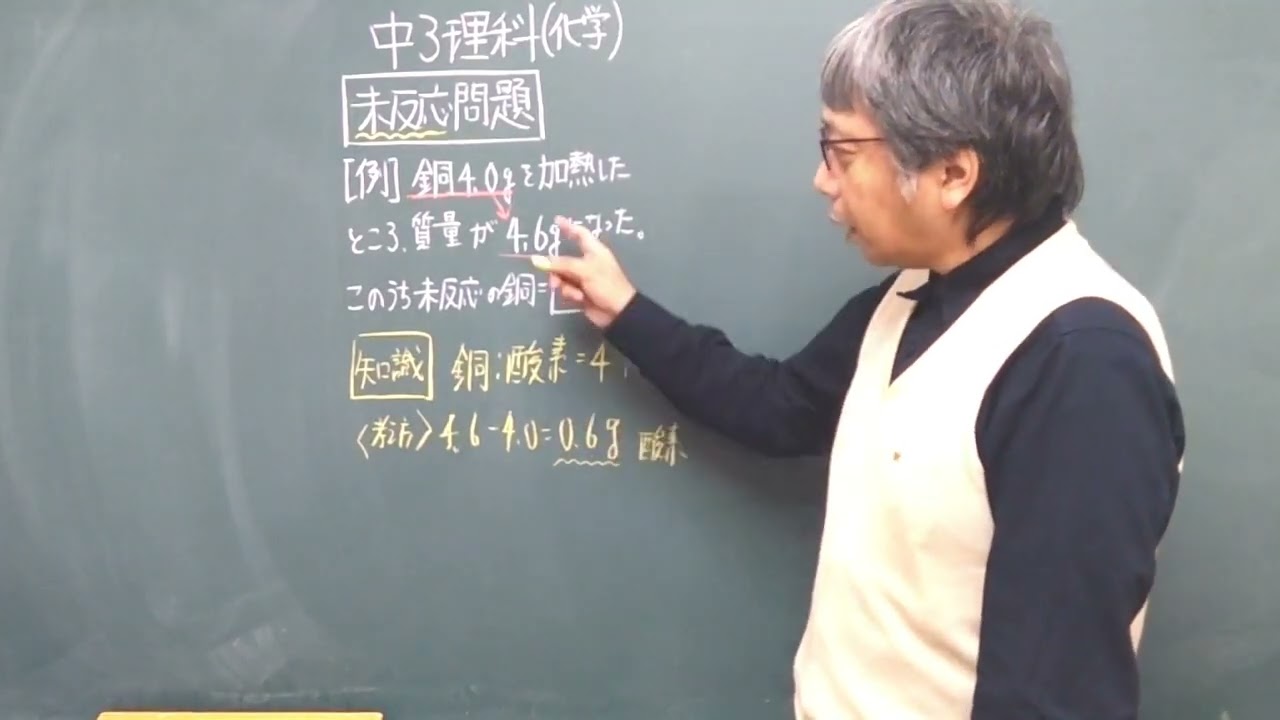 中3理科(化学)
未反応問題
[例] 銅4.0gを加熱した
ところ、質量が4.6gになった。
このうち未反応の銅=
知識 銅:酸素=4:
〈考え方〉4.6-4.0=0.6g 酸素